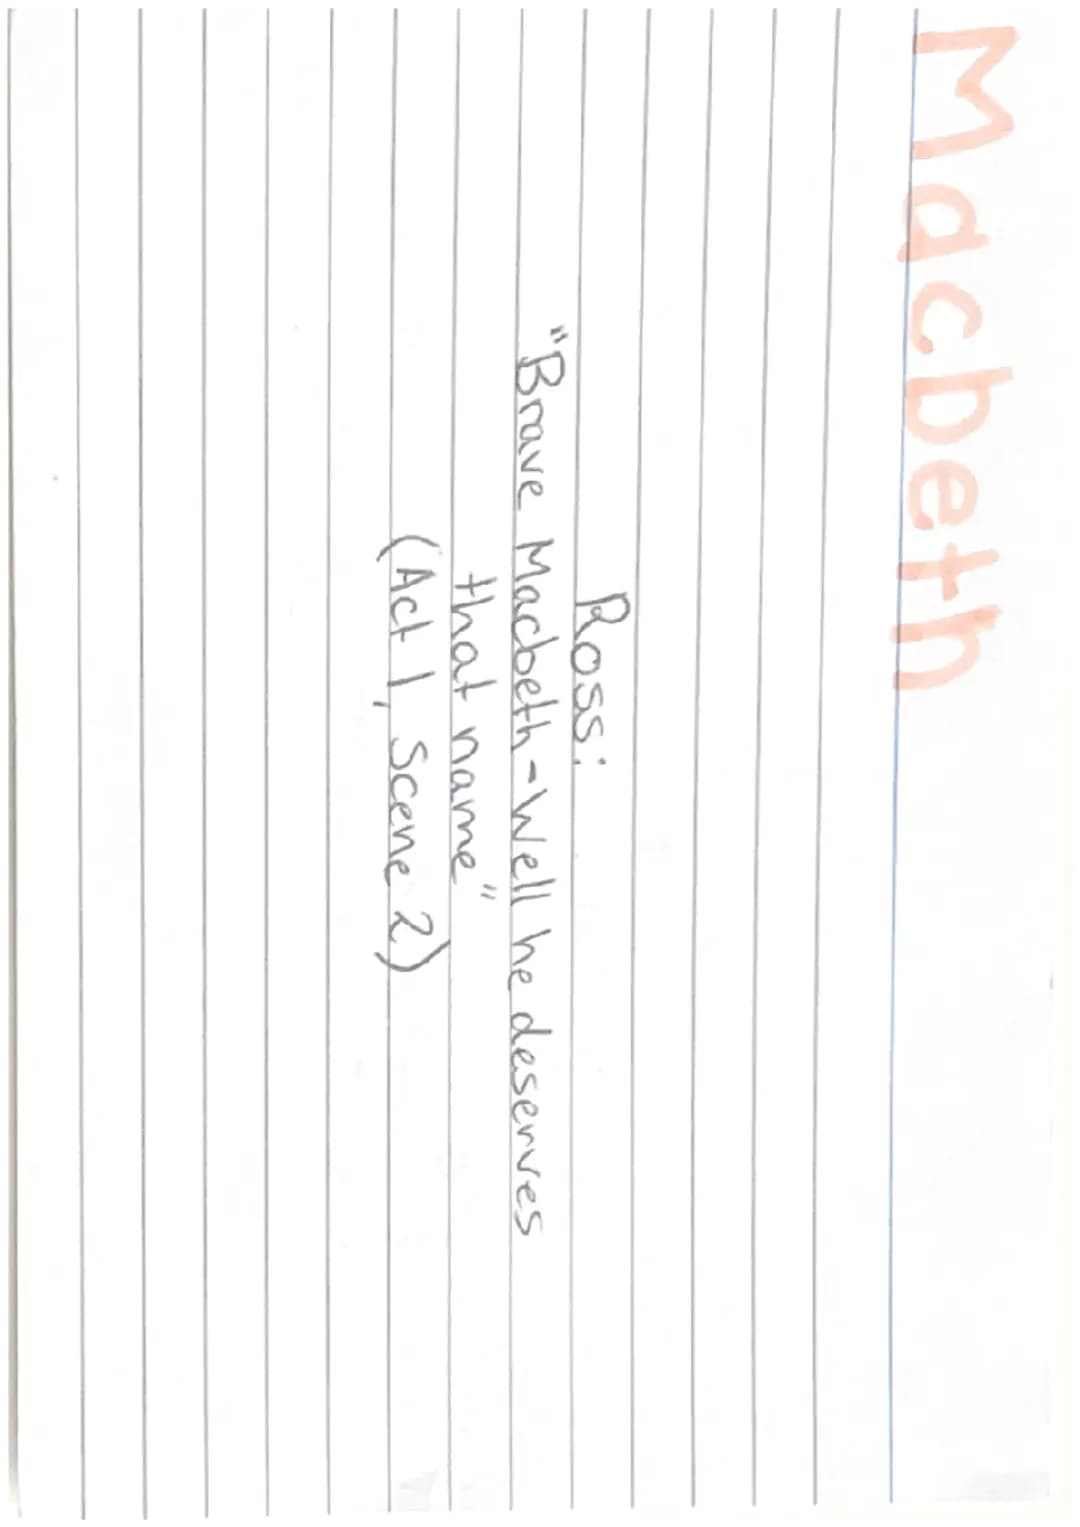 Macbeth
Ross:
"Brave Macbeth - Well he deserves
that name"
(Act 1, Scene 2)